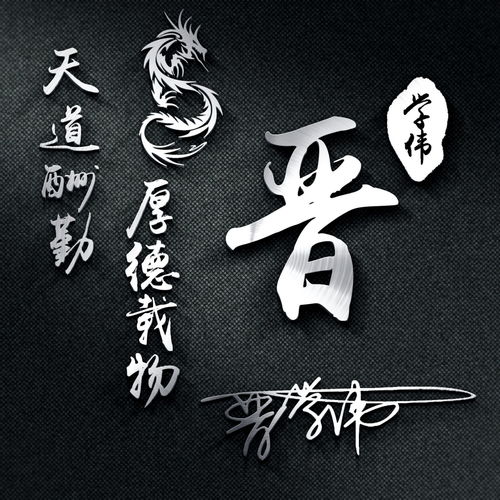 天道酬勤
厚德载物
晋
学伟
晋学伟